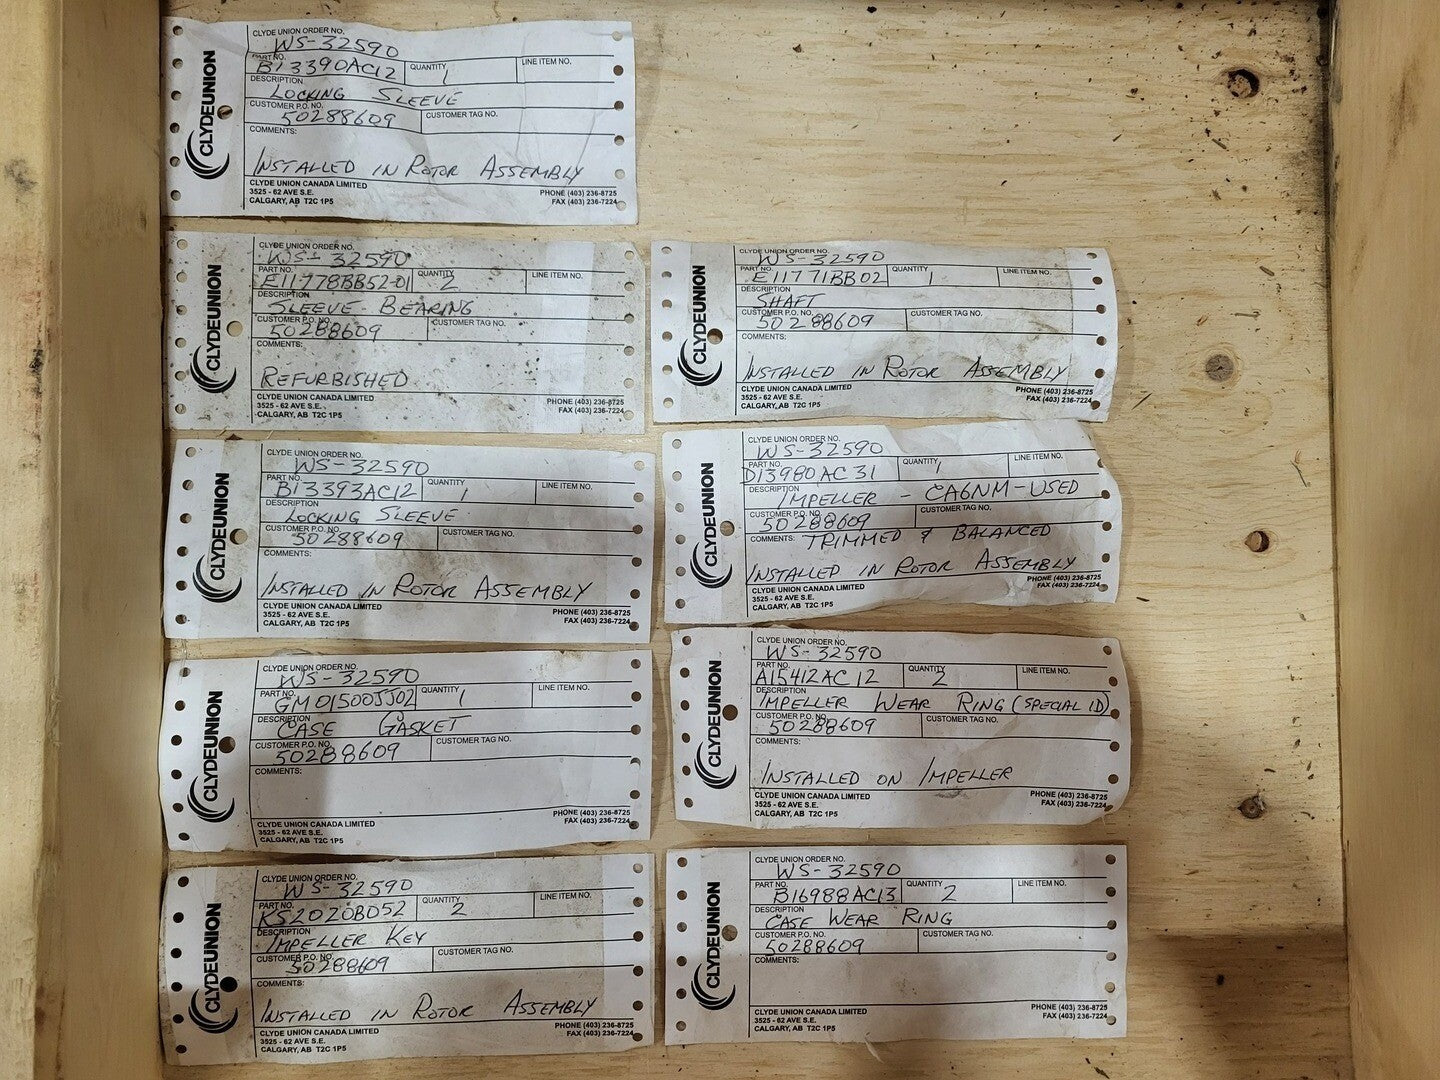 CLYDEUNION
CLYDE UNION ORDER NO.
WS-32590
PART NO.
B13390AC12
QUANTITY
1
LINE ITEM NO.
DESCRIPTION
LOCKING SLEEVE
CUSTOMER P.O. NO.
50288609
CUSTOMER TAG NO.
COMMENTS:
INSTALLED IN ROTOR ASSEMBLY
CLYDE UNION CANADA LIMITED
3525 - 62 AVE S.E.
CALGARY, AB T2C 1P5
PHONE (403) 236-8725
FAX (403) 236-7224
CLYDEUNION
CLYDE UNION ORDER NO.
WS-32590
PART NO.
E11778BB52-01
QUANTITY
2
LINE ITEM NO.
DESCRIPTION
SLEEVE BEARING
CUSTOMER P.O. NO.
50288609
CUSTOMER TAG NO.
COMMENTS:
REFURBISHED
CLYDE UNION CANADA LIMITED
3525 - 62 AVE S.E.
CALGARY, AB T2C 1P5
PHONE (403) 236-8725
FAX (403) 236-7224
CLYDEUNION
CLYDE UNION ORDER NO.
WS-32590
PART NO.
E11771BB02
QUANTITY
1
LINE ITEM NO.
DESCRIPTION
SHAFT
CUSTOMER P.O. NO.
50288609
CUSTOMER TAG NO.
COMMENTS:
INSTALLED IN ROTOR ASSEMBLY
CLYDE UNION CANADA LIMITED
3525 - 62 AVE S.E.
CALGARY, AB T2C 1P5
PHONE (403) 236-8725
FAX (403) 236-7224
CLYDEUNION
CLYDE UNION ORDER NO.
WS-32590
PART NO.
B13393AC12
QUANTITY
1
LINE ITEM NO.
DESCRIPTION
LOCKING SLEEVE
CUSTOMER P.O. NO.
50288609
CUSTOMER TAG NO.
COMMENTS:
INSTALLED IN ROTOR ASSEMBLY
CLYDE UNION CANADA LIMITED
3525 - 62 AVE S.E.
CALGARY, AB T2C 1P5
PHONE (403) 236-8725
FAX (403) 236-7224
CLYDEUNION
CLYDE UNION ORDER NO.
WS-32590
PART NO.
D13980AC31
QUANTITY
1
LINE ITEM NO.
DESCRIPTION
IMPELLER - CA6NM - USED
CUSTOMER P.O. NO.
50288609
CUSTOMER TAG NO.
COMMENTS: TRIMMED & BALANCED
INSTALLED IN ROTOR ASSEMBLY
CLYDE UNION CANADA LIMITED
3525 - 62 AVE S.E.
CALGARY, AB T2C 1P5
PHONE (403) 236-8725
FAX (403) 236-7224
CLYDEUNION
CLYDE UNION ORDER NO.
WS-32590
PART NO.
GM01500JJ02
QUANTITY
1
LINE ITEM NO.
DESCRIPTION
CASE GASKET
CUSTOMER P.O. NO.
50288609
CUSTOMER TAG NO.
COMMENTS:
CLYDE UNION CANADA LIMITED
3525 - 62 AVE S.E.
CALGARY, AB T2C 1P5
PHONE (403) 236-8725
FAX (403) 236-7224
CLYDEUNION
CLYDE UNION ORDER NO.
WS-32590
PART NO.
A15412AC12
QUANTITY
2
LINE ITEM NO.
DESCRIPTION
IMPELLER WEAR RING (SPECIAL ID)
CUSTOMER P.O. NO.
50288609
CUSTOMER TAG NO.
COMMENTS:
INSTALLED ON IMPELLER
CLYDE UNION CANADA LIMITED
3525 - 62 AVE S.E.
CALGARY, AB T2C 1P5
PHONE (403) 236-8725
FAX (403) 236-7224
CLYDEUNION
CLYDE UNION ORDER NO.
WS-32590
PART NO.
KS2020BD52
QUANTITY
2
LINE ITEM NO.
DESCRIPTION
IMPELLER KEY
CUSTOMER P.O. NO.
50288609
CUSTOMER TAG NO.
COMMENTS:
INSTALLED IN ROTOR ASSEMBLY
CLYDE UNION CANADA LIMITED
3525 - 62 AVE S.E.
CALGARY, AB T2C 1P5
PHONE (403) 236-8725
FAX (403) 236-7224
CLYDEUNION
CLYDE UNION ORDER NO.
WS-32590
PART NO.
B16988AC13
QUANTITY
2
LINE ITEM NO.
DESCRIPTION
CASE WEAR RING
CUSTOMER P.O. NO.
50288609
CUSTOMER TAG NO.
COMMENTS:
CLYDE UNION CANADA LIMITED
3525 - 62 AVE S.E.
CALGARY, AB T2C 1P5
PHONE (403) 236-8725
FAX (403) 236-7224